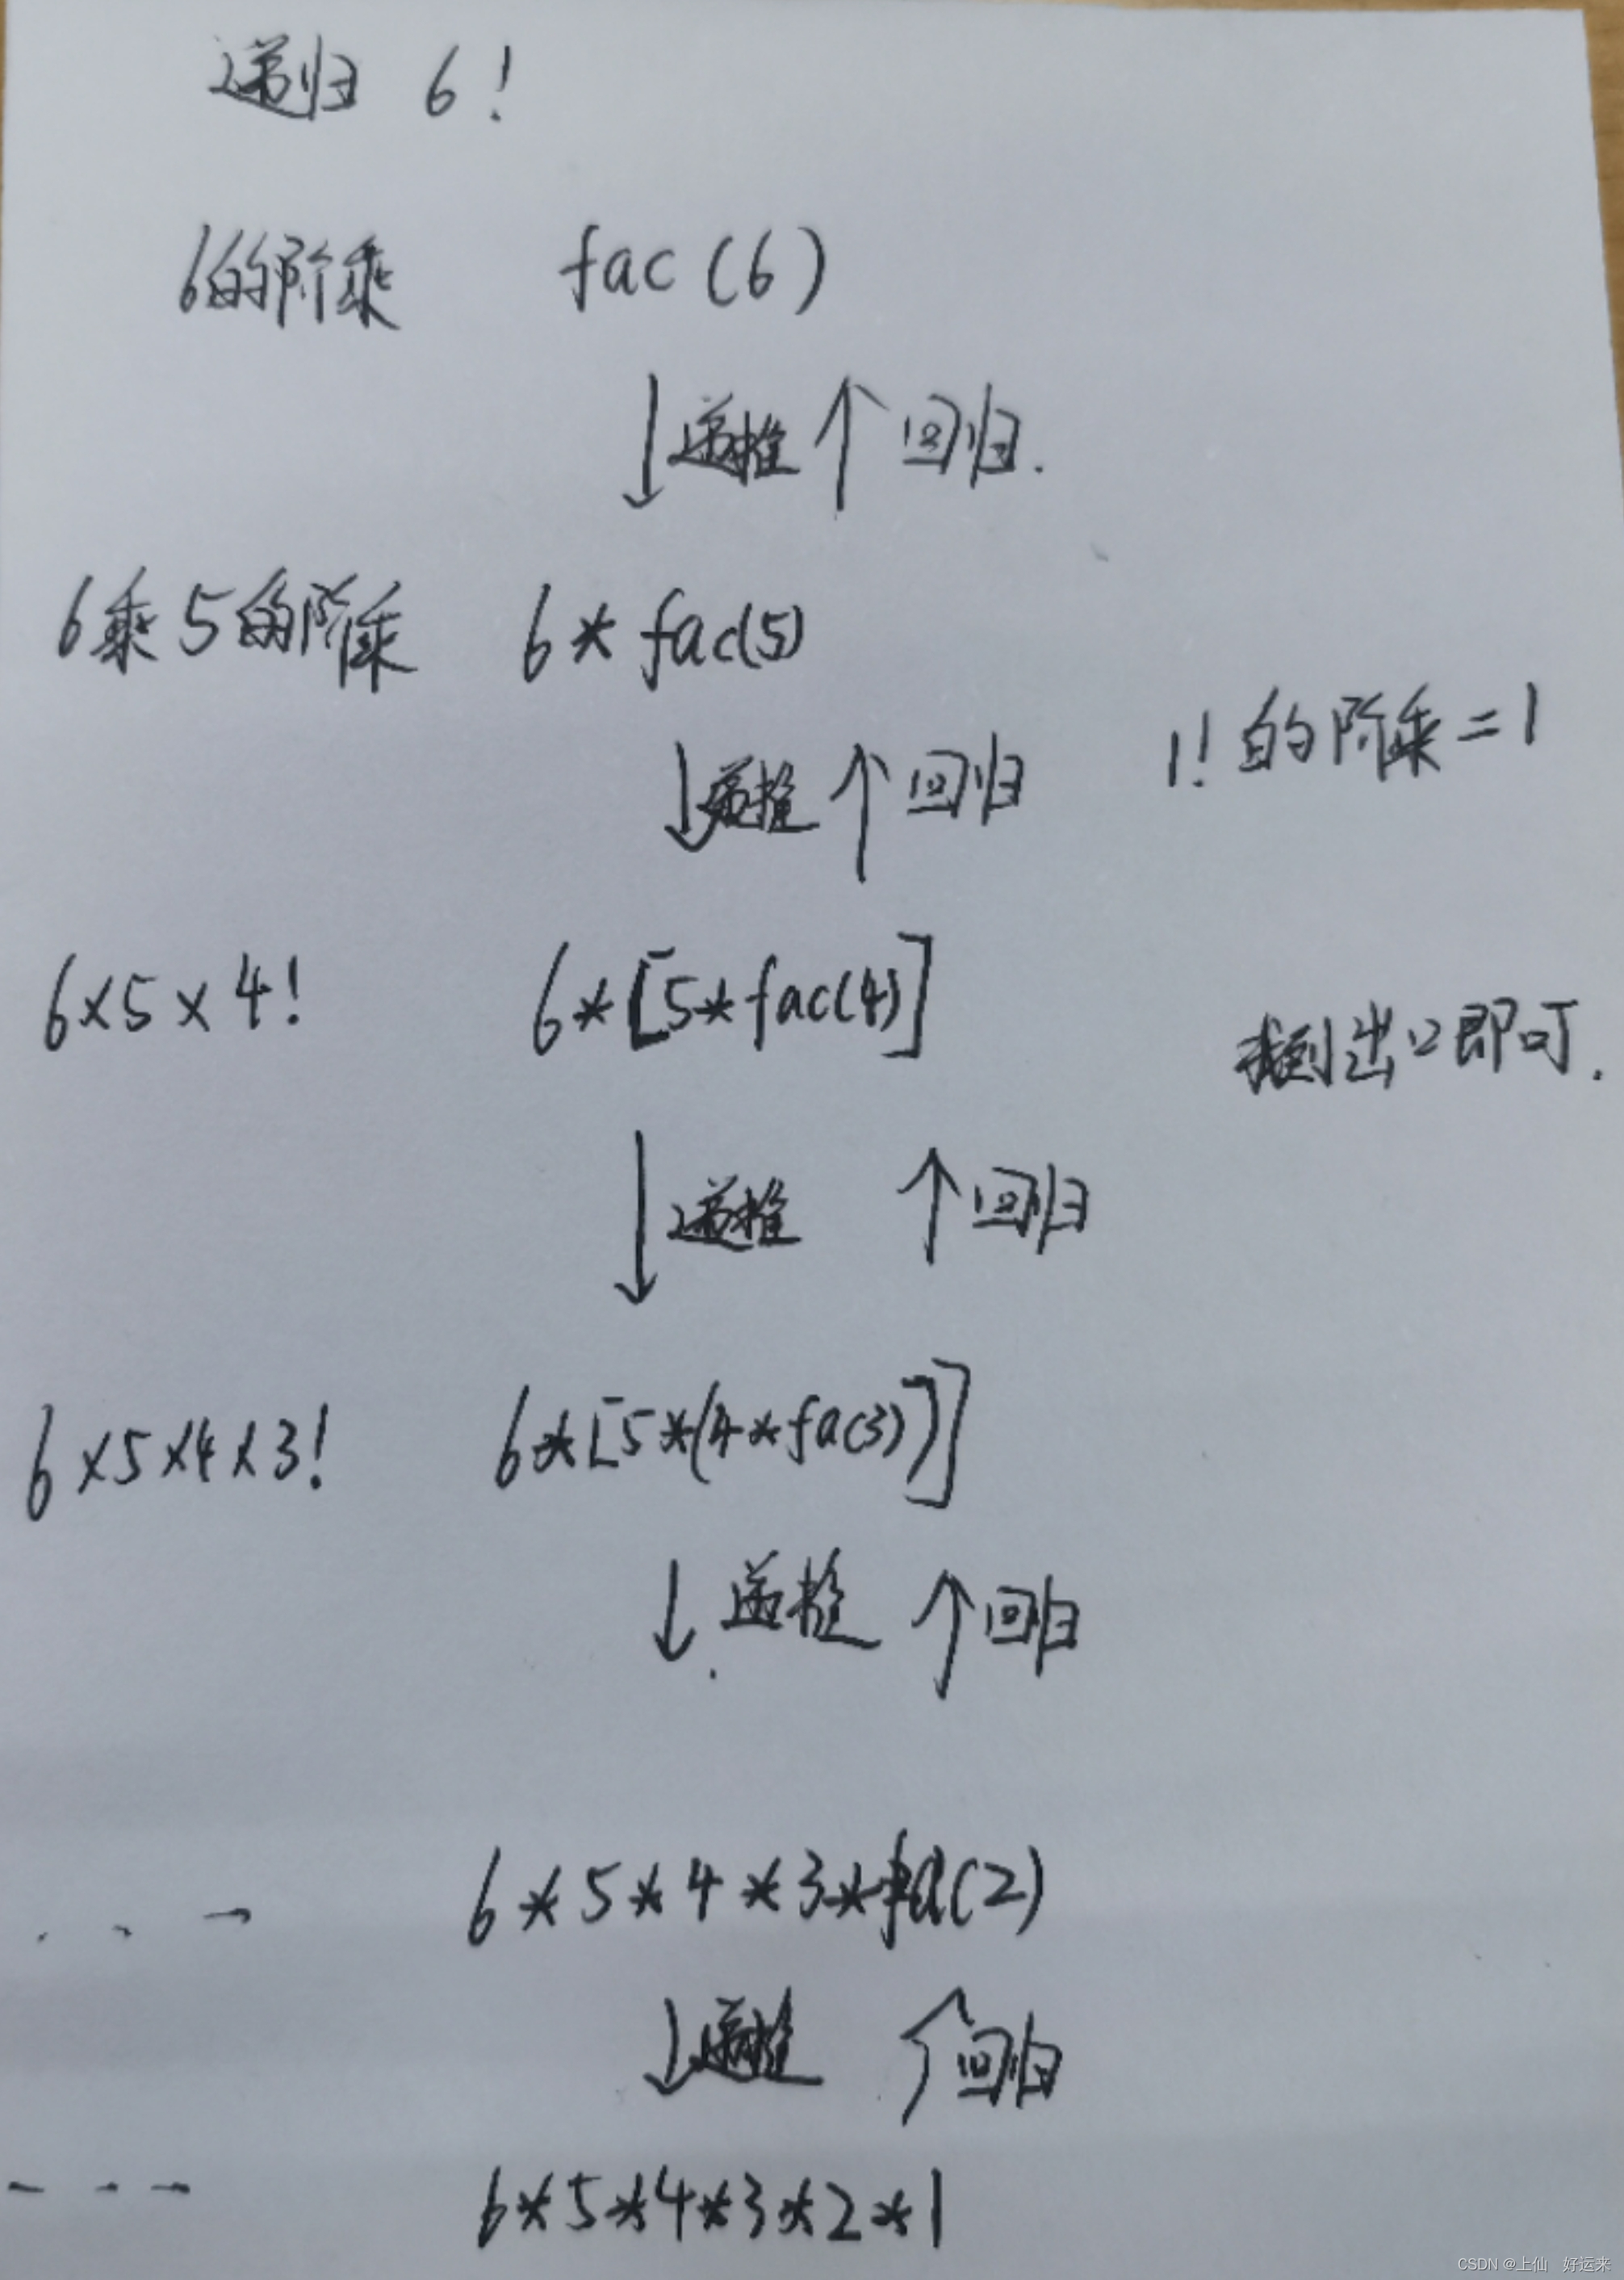 递归 6!
6的阶乘 fac(6)
↓递推 ↑回归.
6乘5的阶乘 6*fac(5)
1!的阶乘=1
↓递推 ↑回归
6×5×4! 6*[5*fac(4)]
找到出口即可.
↓递推 ↑回归
6×5×4×3! 6*[5*(4*fac3)]]
↓递推 ↑回归
... 6*5*4*3*fa(2)
↓递推 ↑回归
--- 6*5*4*3*2*1
CSDN @上仙 好运来